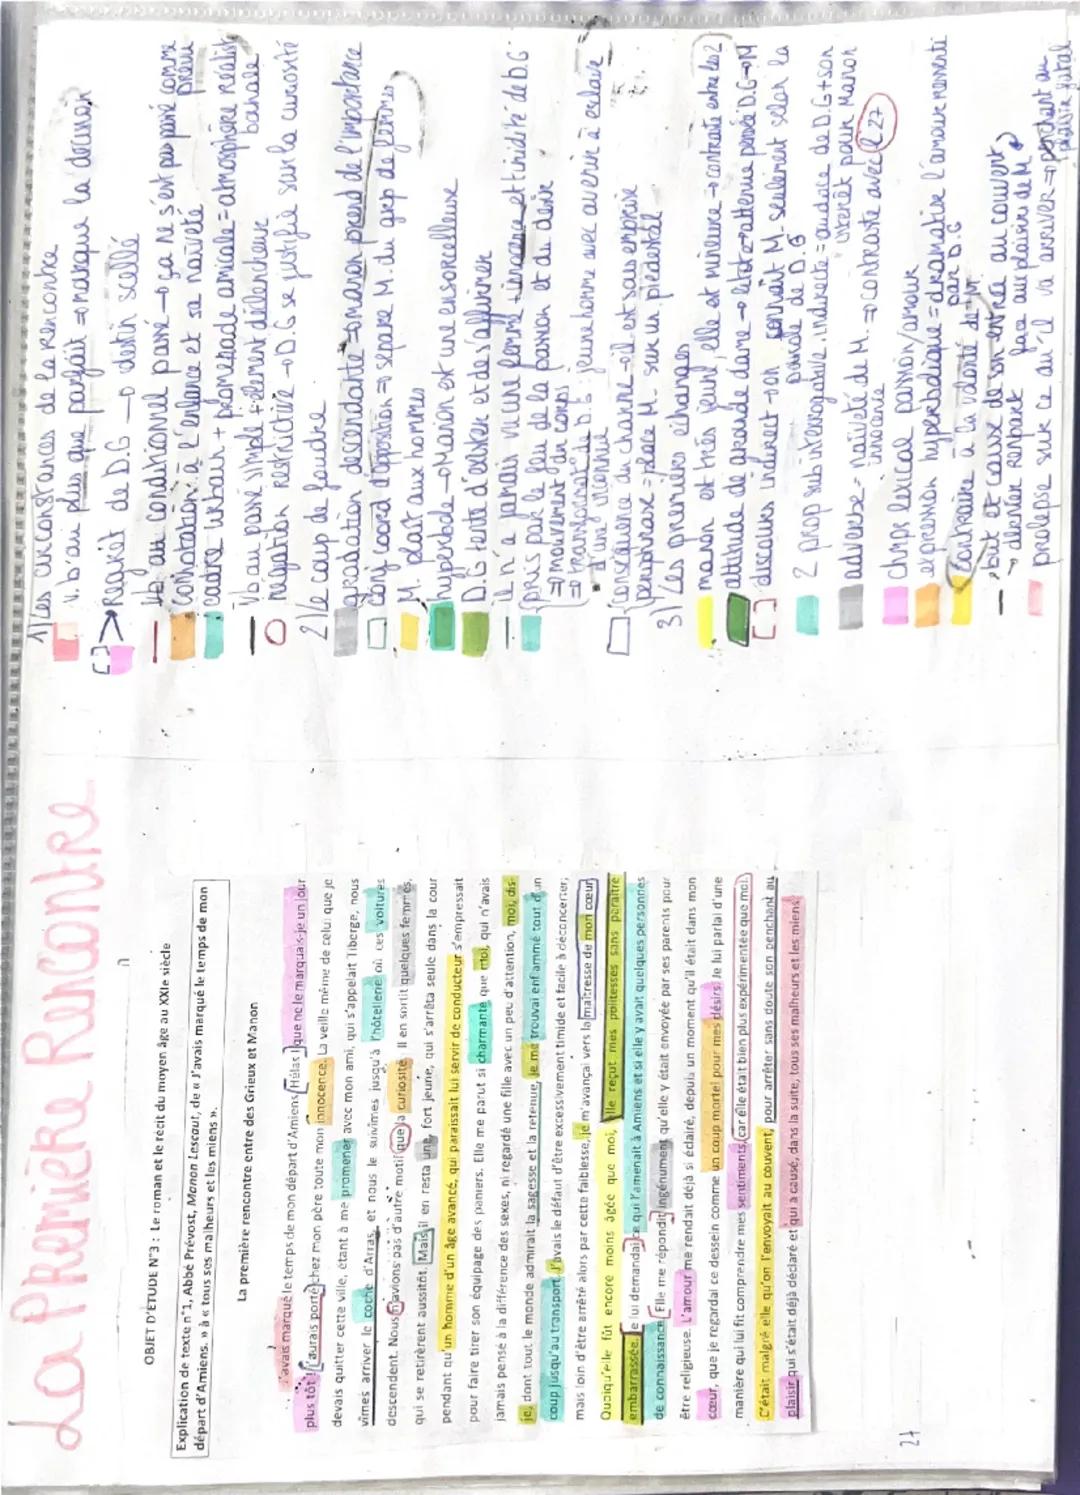 La Première Rencontre
OBJET D'ÉTUDE N°3 : Le roman et le récit du moyen âge au XXIe siècle
Explication de texte n°1, Abbé Prévost, Manon Lescaut, de « J'avais marqué le temps de mon
départ d'Amiens. » à « tous ses malheurs et les miens ».
La première rencontre entre des Grieux et Manon
J'avais marqué le temps de mon départ d'Amiens. Hélas ! que ne le marquais-je un jour
plus tôt ! j'aurais porté chez mon père toute mon innocence. La veille même de celui que je
devais quitter cette ville, étant à me promener avec mon ami, qui s'appelait Tiberge, nous
vîmes arriver le coche d'Arras, et nous le suivîmes jusqu'à l'hôtellerie où ces voitures
descendent. Nous n'avions pas d'autre motif que la curiosité. Il en sortit quelques femmes,
qui se retirèrent aussitôt. Mais il en resta une, fort jeune, qui s'arrêta seule dans la cour
pendant qu'un homme d'un âge avancé, qui paraissait lui servir de conducteur s'empressait
pour faire tirer son équipage des paniers. Elle me parut si charmante que moi, qui n'avais
jamais pensé à la différence des sexes, ni regardé une fille avec un peu d'attention, moi, dis-
je, dont tout le monde admirait la sagesse et la retenue, je me trouvai enflammé tout d'un
coup jusqu'au transport. J'avais le défaut d'être excessivement timide et facile à déconcerter;
mais loin d'être arrêté alors par cette faiblesse, je m'avançai vers la maîtresse de mon cœur.
Quoiqu'elle fût encore moins âgée que moi, elle reçut mes politesses sans paraître
embarrassée. Je lui demandai ce qui l'amenait à Amiens et si elle y avait quelques personnes
de connaissance. Elle me répondit ingénument qu'elle y était envoyée par ses parents pour
être religieuse. L'amour me rendait déjà si éclairé, depuis un moment qu'il était dans mon
cœur, que je regardai ce dessein comme un coup mortel pour mes désirs. Je lui parlai d'une
manière qui lui fit comprendre mes sentiments, car elle était bien plus expérimentée que moi.
C'était malgré elle qu'on l'envoyait au couvent, pour arrêter sans doute son penchant au
plaisir qui s'était déjà déclaré et qui a causé, dans la suite, tous ses malheurs et les miens.
27
1) Les circonstances de la rencontre
v.b au plus que parfait ⇒ marque la décision
Regret de D.G → destin scellé
Vb au conditionnel passé → ça ne s'est pas passé comme
prévu
Connotation à l'enfance et sa naïveté
cadre urbain + promenade amicale = atmosphère réaliste
banale
Vb au passé simple + élement déclencheur
negation restrictive → D.G se justifie sur la curiosité
2) Le coup de foudre
gradation descendante ⇒ manon prend de l'importance
Conj coord d'opposition ⇒ separe M. du grp de femmes
M. plaît aux hommes
hyperbole → Manon est une ensorcelleuse
D.G tente d'exister et de s'affirmer
il n'a jamais vu une femme + innocence et timidité de D.G.
pris par le feu de la passion et du désir
⇒ mouvement du corps
⇒ transformat° de D.G : jeune homme avec avenir à esclave
d'une inconnue
Conséquence du charme → il est sous emprise
periphrase = place M. sur un piédestal
3) Les premiers échanges
manon est très jeune, elle est mineure → contraste entre les 2
attitude de grande dame → litote → atténue pensée D.G → M
discours indirect → on connaît M. seulement selon la
parole de D.G
2 prop sub interrogative indirecte = audace de D.G + son
interêt pour Manon
adverbe = naïveté de M. ⇒ contraste avec l 27
innocente
Chmps lexical passion/amour
expression hyperbolique = dramatise l'amour ressenti
par D.G
Contraire à la volonté de M
but et cause de son entrée au couvent
→ destin renbart face au plaisir de M
prolepse sur ce qu'il va arriver ⇒ penchant au
plaisir fatal